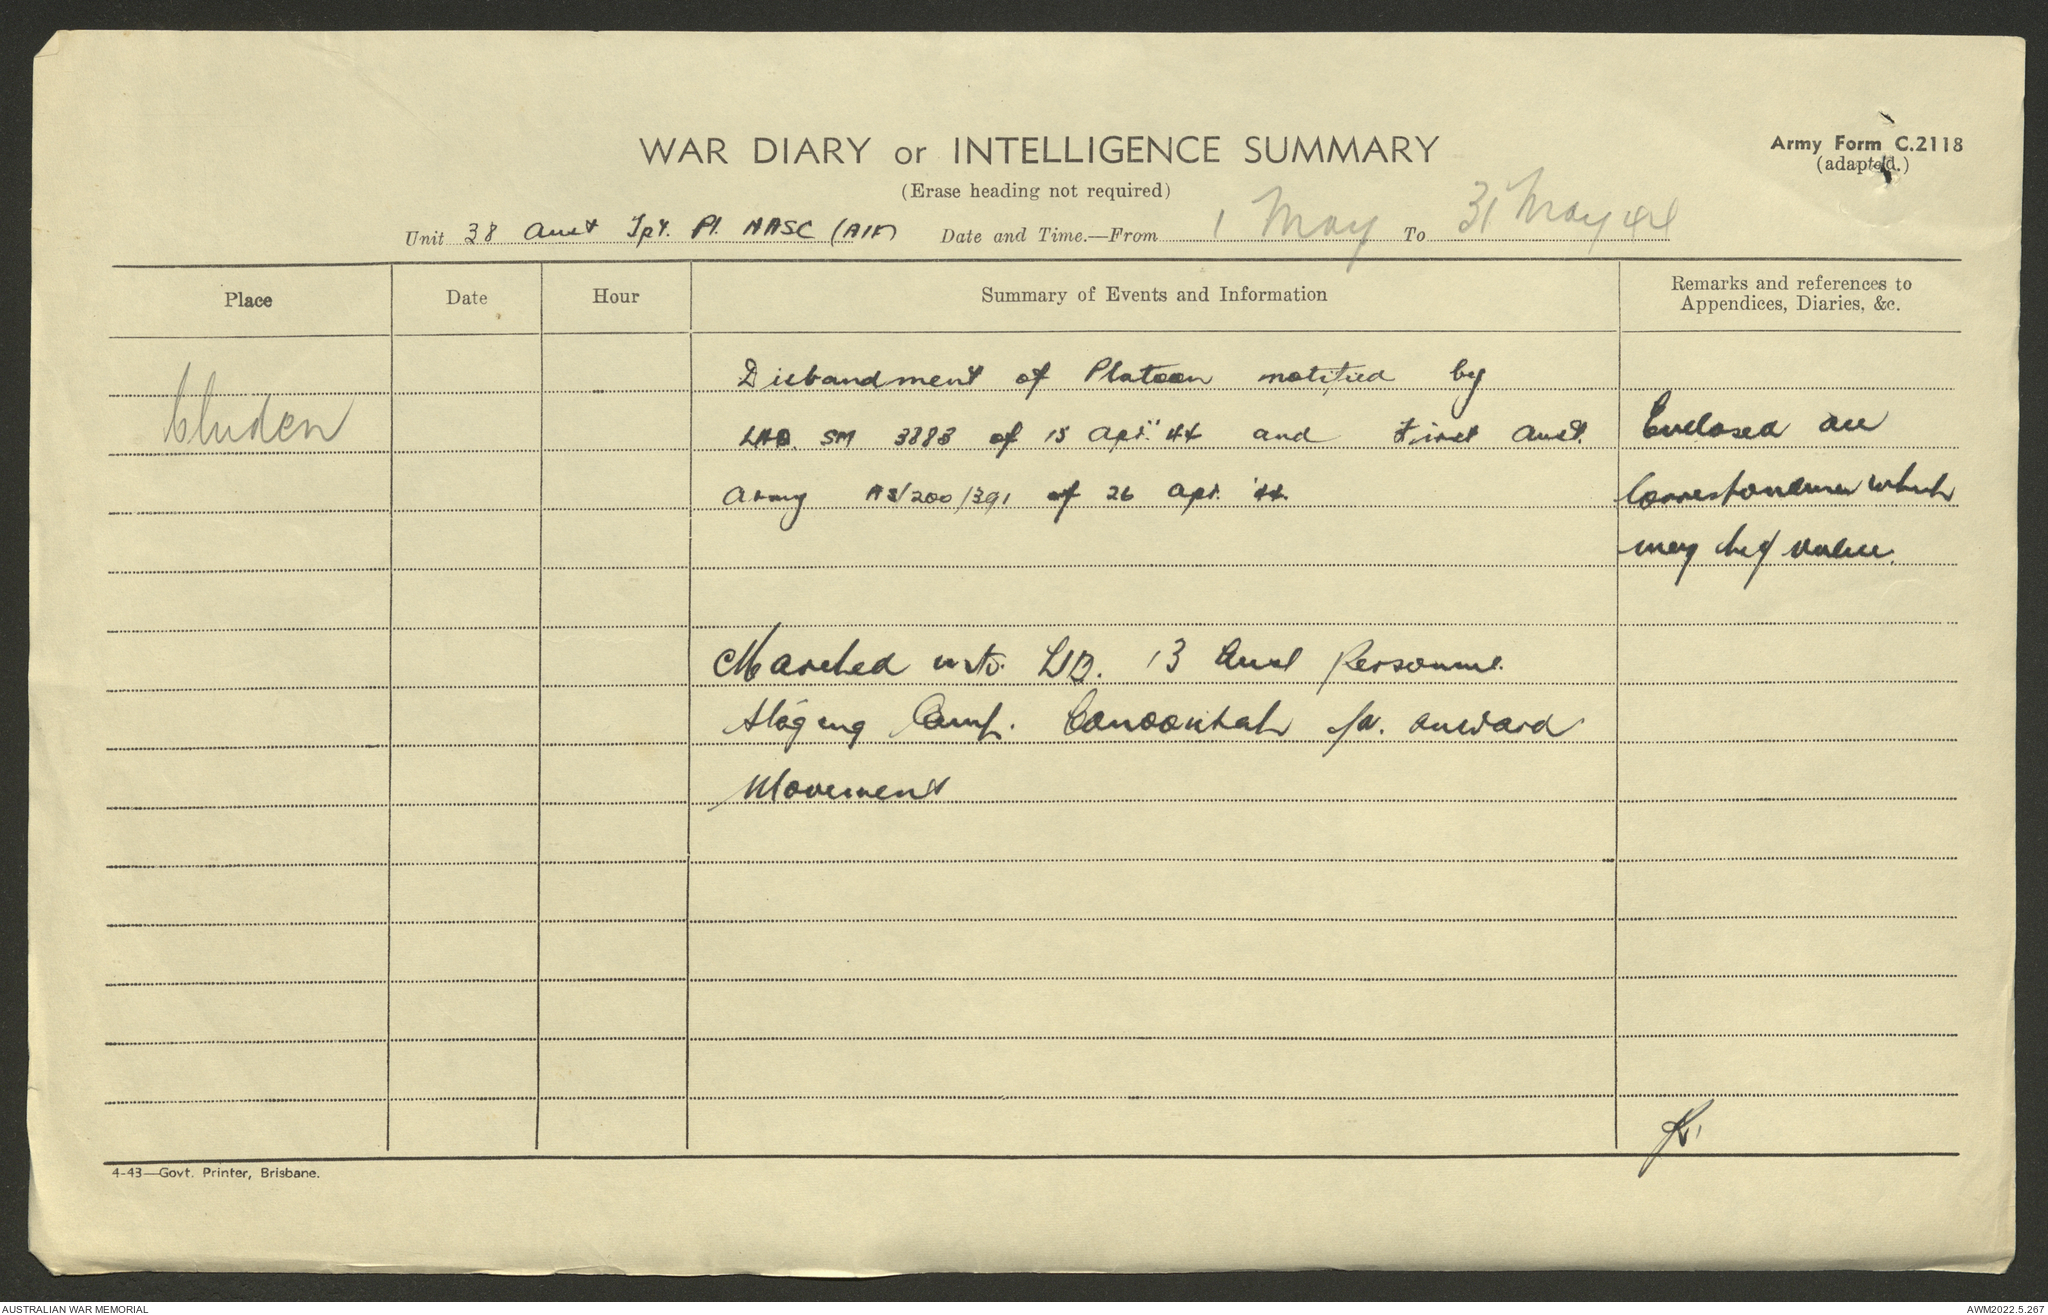 WAR DIARY or INTELLIGENCE SUMMARY
Army Form C.2118
(adapted.)
(Erase heading not required)
Unit 38 Aust Tpt. Pl. AASC (AIF) Date and Time.—From 1 May To 31 May 44
Place Date Hour Summary of Events and Information Remarks and references to
Appendices, Diaries, &c.
Disbandment of Platoon notified by
Cluden
LHQ SM 3883 of 15 Apr. 44 and First Aust. Enclosed are
Army A3/200/391 of 26 Apr. '44. Correspondence which
may be of value.
Marched 13 Aust Personnel
Staging Camp. for onward
Movement
4-43—Govt. Printer, Brisbane.
AUSTRALIAN WAR MEMORIAL
AWM2022.5.267